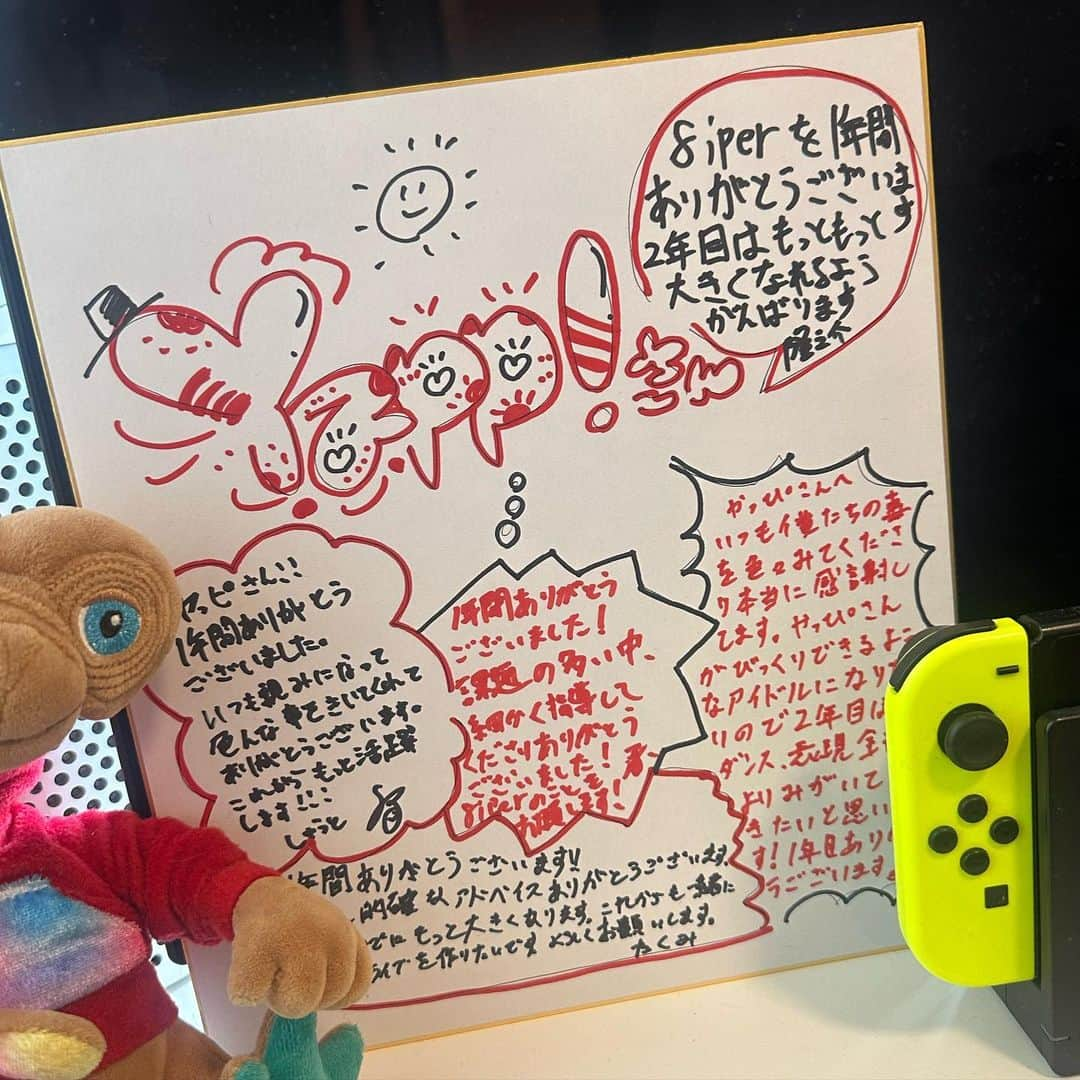 8iperを1年間
ありがとうございます
2年目はもっともっと
大きくなれるよう
がんばります
隆之介
やっぴ!さん
ヤッピさん!!
1年間ありがとう
ございました。
いつも親みになって
色んな事をきいてくれて
ありがとうございます。
これからもっと活躍
します!!!
しょうと
1年間ありがとう
ございました!
課題の多い中、
細かく指導して
くださりありがとう
ございました!
8iperのことを、
お願します!
やっぴさんへ
いつも僕たちの事
を色々みてくださ
り本当に感謝し
てます。やっぴさん
がびっくりできるよ
なアイドルになり
ので2年目は
ダンス、表現全
よりみがいて
きたいと思い
す!1年目あり
うございます。
年間ありがとうございます!!
的確なアドバイスありがとうございます。
にもっと大きくなります。これからも一緒に
ライブを作りたいです よろしくお願いします。
たくみ